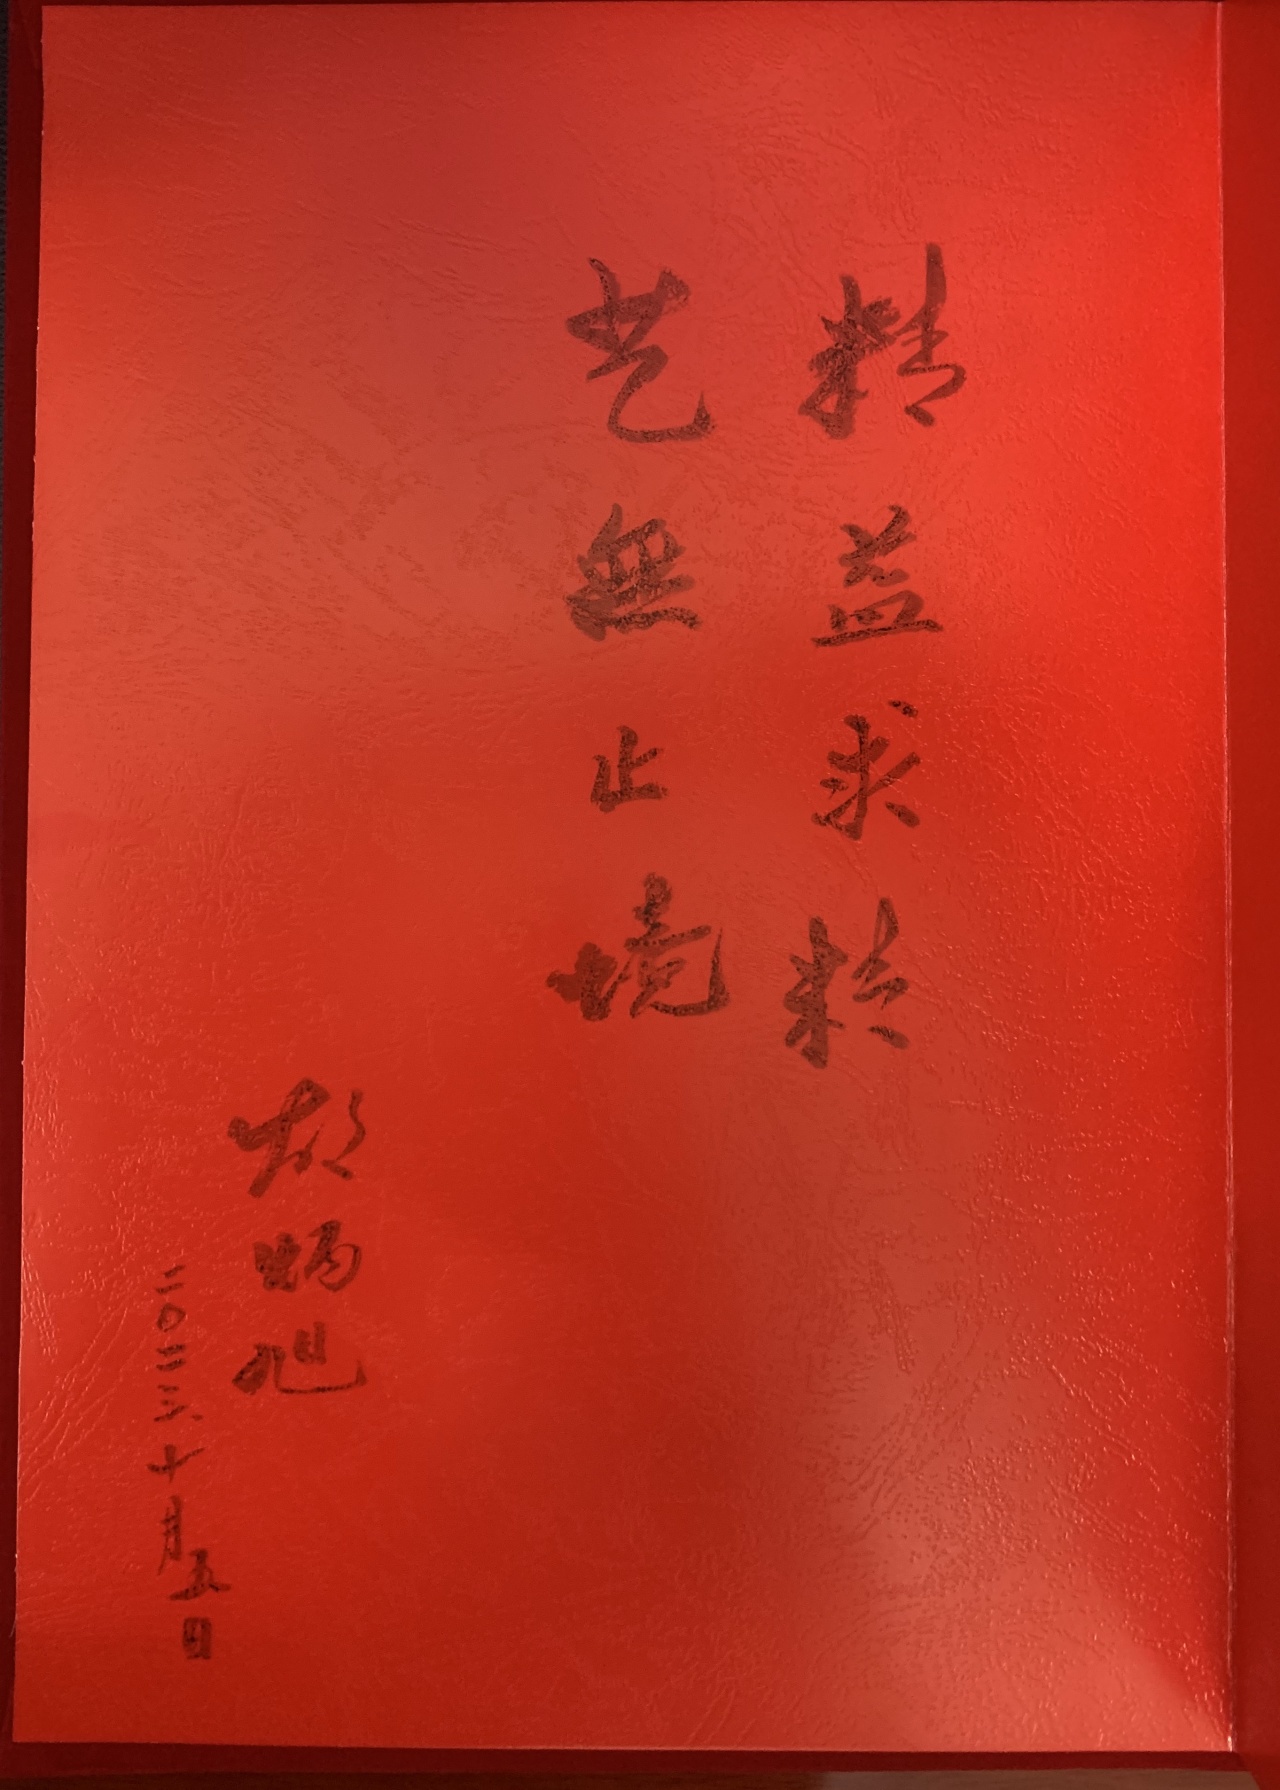 精益求精
艺無止境
胡炳旭
二〇二三、十月五日